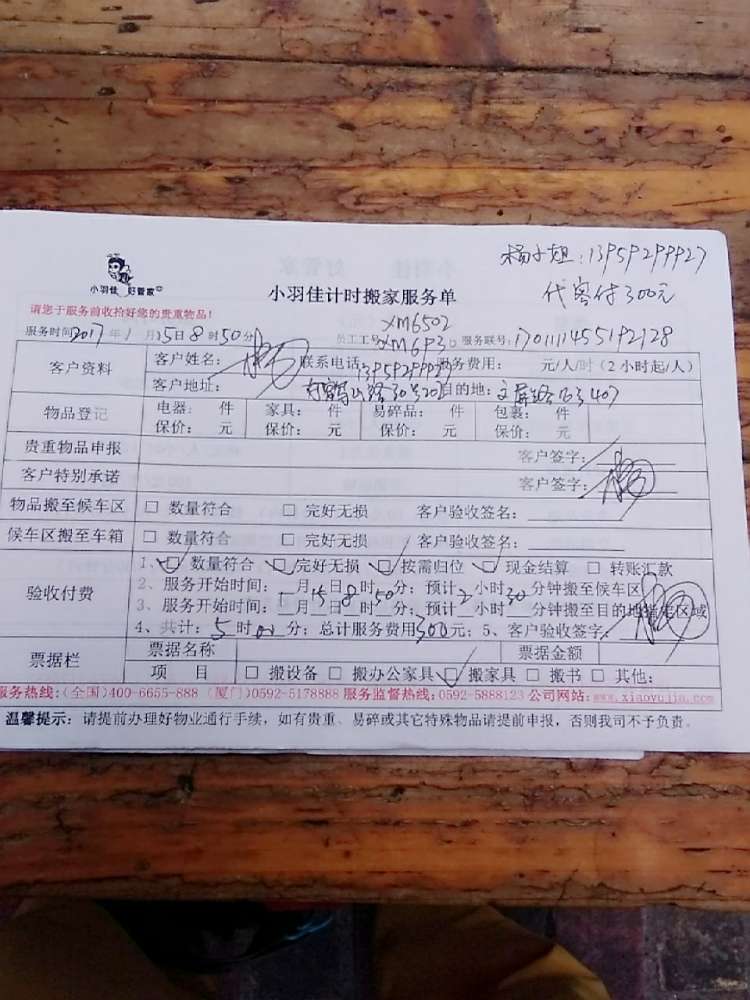 杨小姐:13959299927
代客付300元
小羽佳 好管家
小羽佳计时搬家服务单
请您于服务前收拾好您的贵重物品!
XM6502
服务时间2017年1月15日8时50分 员工工号: XM6P30 服务联号:1701111455192128
客户资料 客户姓名: 杨 联系电话:13959299927 服务费用: 元/人/时(2小时起/人)
客户地址: 30号202 目的地:文屏路163 407
物品登记 电器: 件 家具: 件 易碎品: 件 包裹: 件
保价: 元 保价: 元 保价: 元 保价: 元
贵重物品申报 客户签字:
客户特别承诺 客户签字: 杨
物品搬至候车区 □ 数量符合 □ 完好无损 客户验收签名:
候车区搬至车箱 □ 数量符合 □ 完好无损 客户验收签名:
验收付费 1、☑ 数量符合 ☑ 完好无损 ☑ 按需归位 ☑ 现金结算 □ 转账汇款
2、服务开始时间:1月15日8时50分;预计2小时30分钟搬至候车区
3、服务开始时间:__月15日8时50分;预计__小时__分钟搬至目的地指定区域
4、共计:5时00分;总计服务费用300元;5、客户验收签字: 杨
票据栏 票据名称 票据金额
项 目 □ 搬设备 □ 搬办公家具 ☑ 搬家具 □ 搬书 □ 其他:
服务热线:(全国)400-6655-888 (厦门)0592-5178888 服务监督热线:0592-5888123 公司网站:www.xiaoyujia.com
温馨提示:请提前办理好物业通行手续,如有贵重、易碎或其它特殊物品请提前申报,否则我司不予负责。